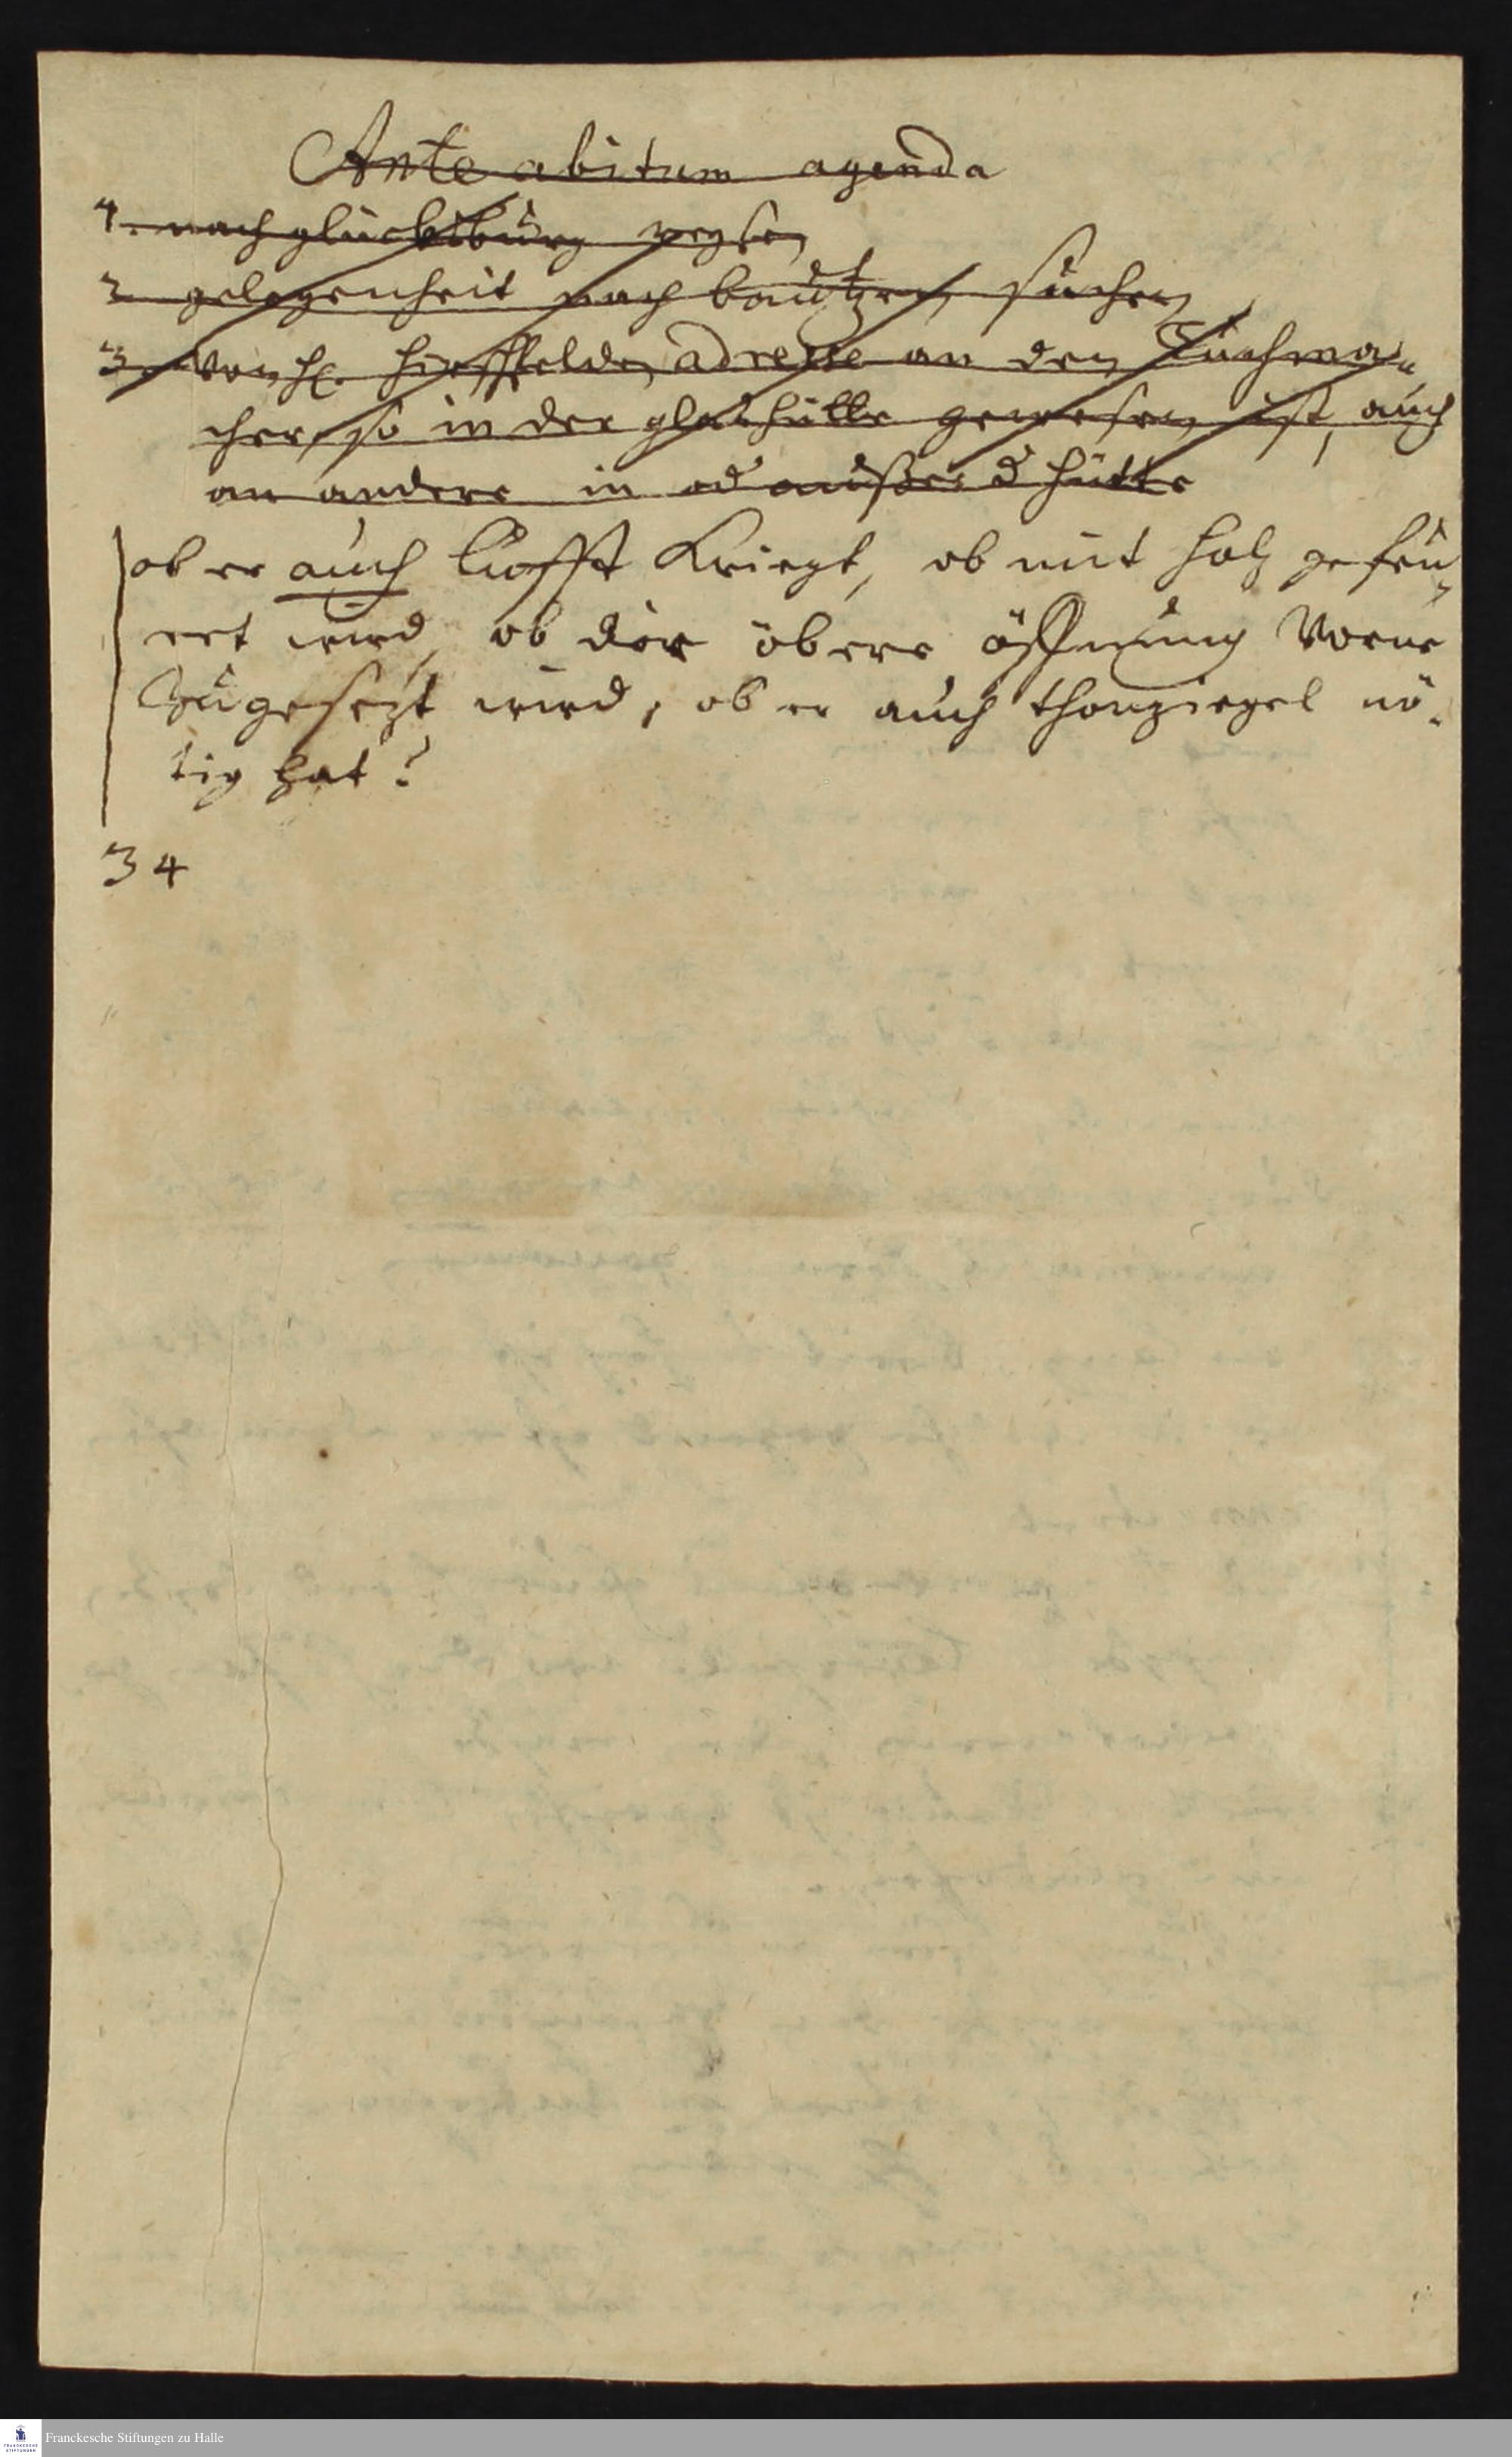 Ante abitum agenda
1. nach glücksburg reysen
2 gelegenheit nach bautzen suchen
3. von H. adresse an den Tuchma-
cher, so in der glashütte gewesen ist, auch
an andere in od außer d hütte
ob er auch lufft Kriegt, ob mit holz gefeu-
ret wird, ob die obere öffnung Vorne
Zugesezt wird, ob er auch thonziegel nö-
tig hat?
34
Franckesche Stiftungen zu Halle